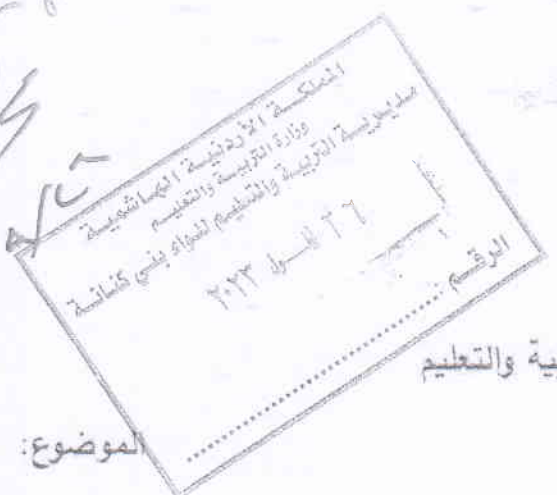 المملكة الأردنية الهاشمية
وزارة التربية والتعليم
مديرية التربية والتعليم للواء بني كنانة
٢٦ أيلول ٢٠٢٣
الرقم ........................
ية والتعليم
الموضوع: